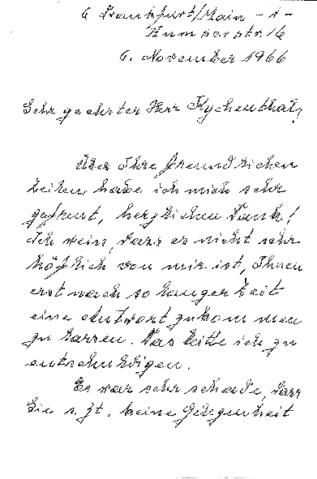 6 Frankfurt/Main - 1 -
str. 16
6. November 1966
Sehr geehrter Herr Kychenthal,
Über Ihre freundlichen
Zeilen habe ich mich sehr
gefreut, herzlichen Dank!
Ich weiss, dass es nicht sehr
höflich von mir ist, Ihnen
erst nach so langer Zeit
eine Antwort zukommen
zu lassen. Das bitte ich zu
entschuldigen.
Es war sehr schade, dass
Sie s. Zt. keine Gelegenheit